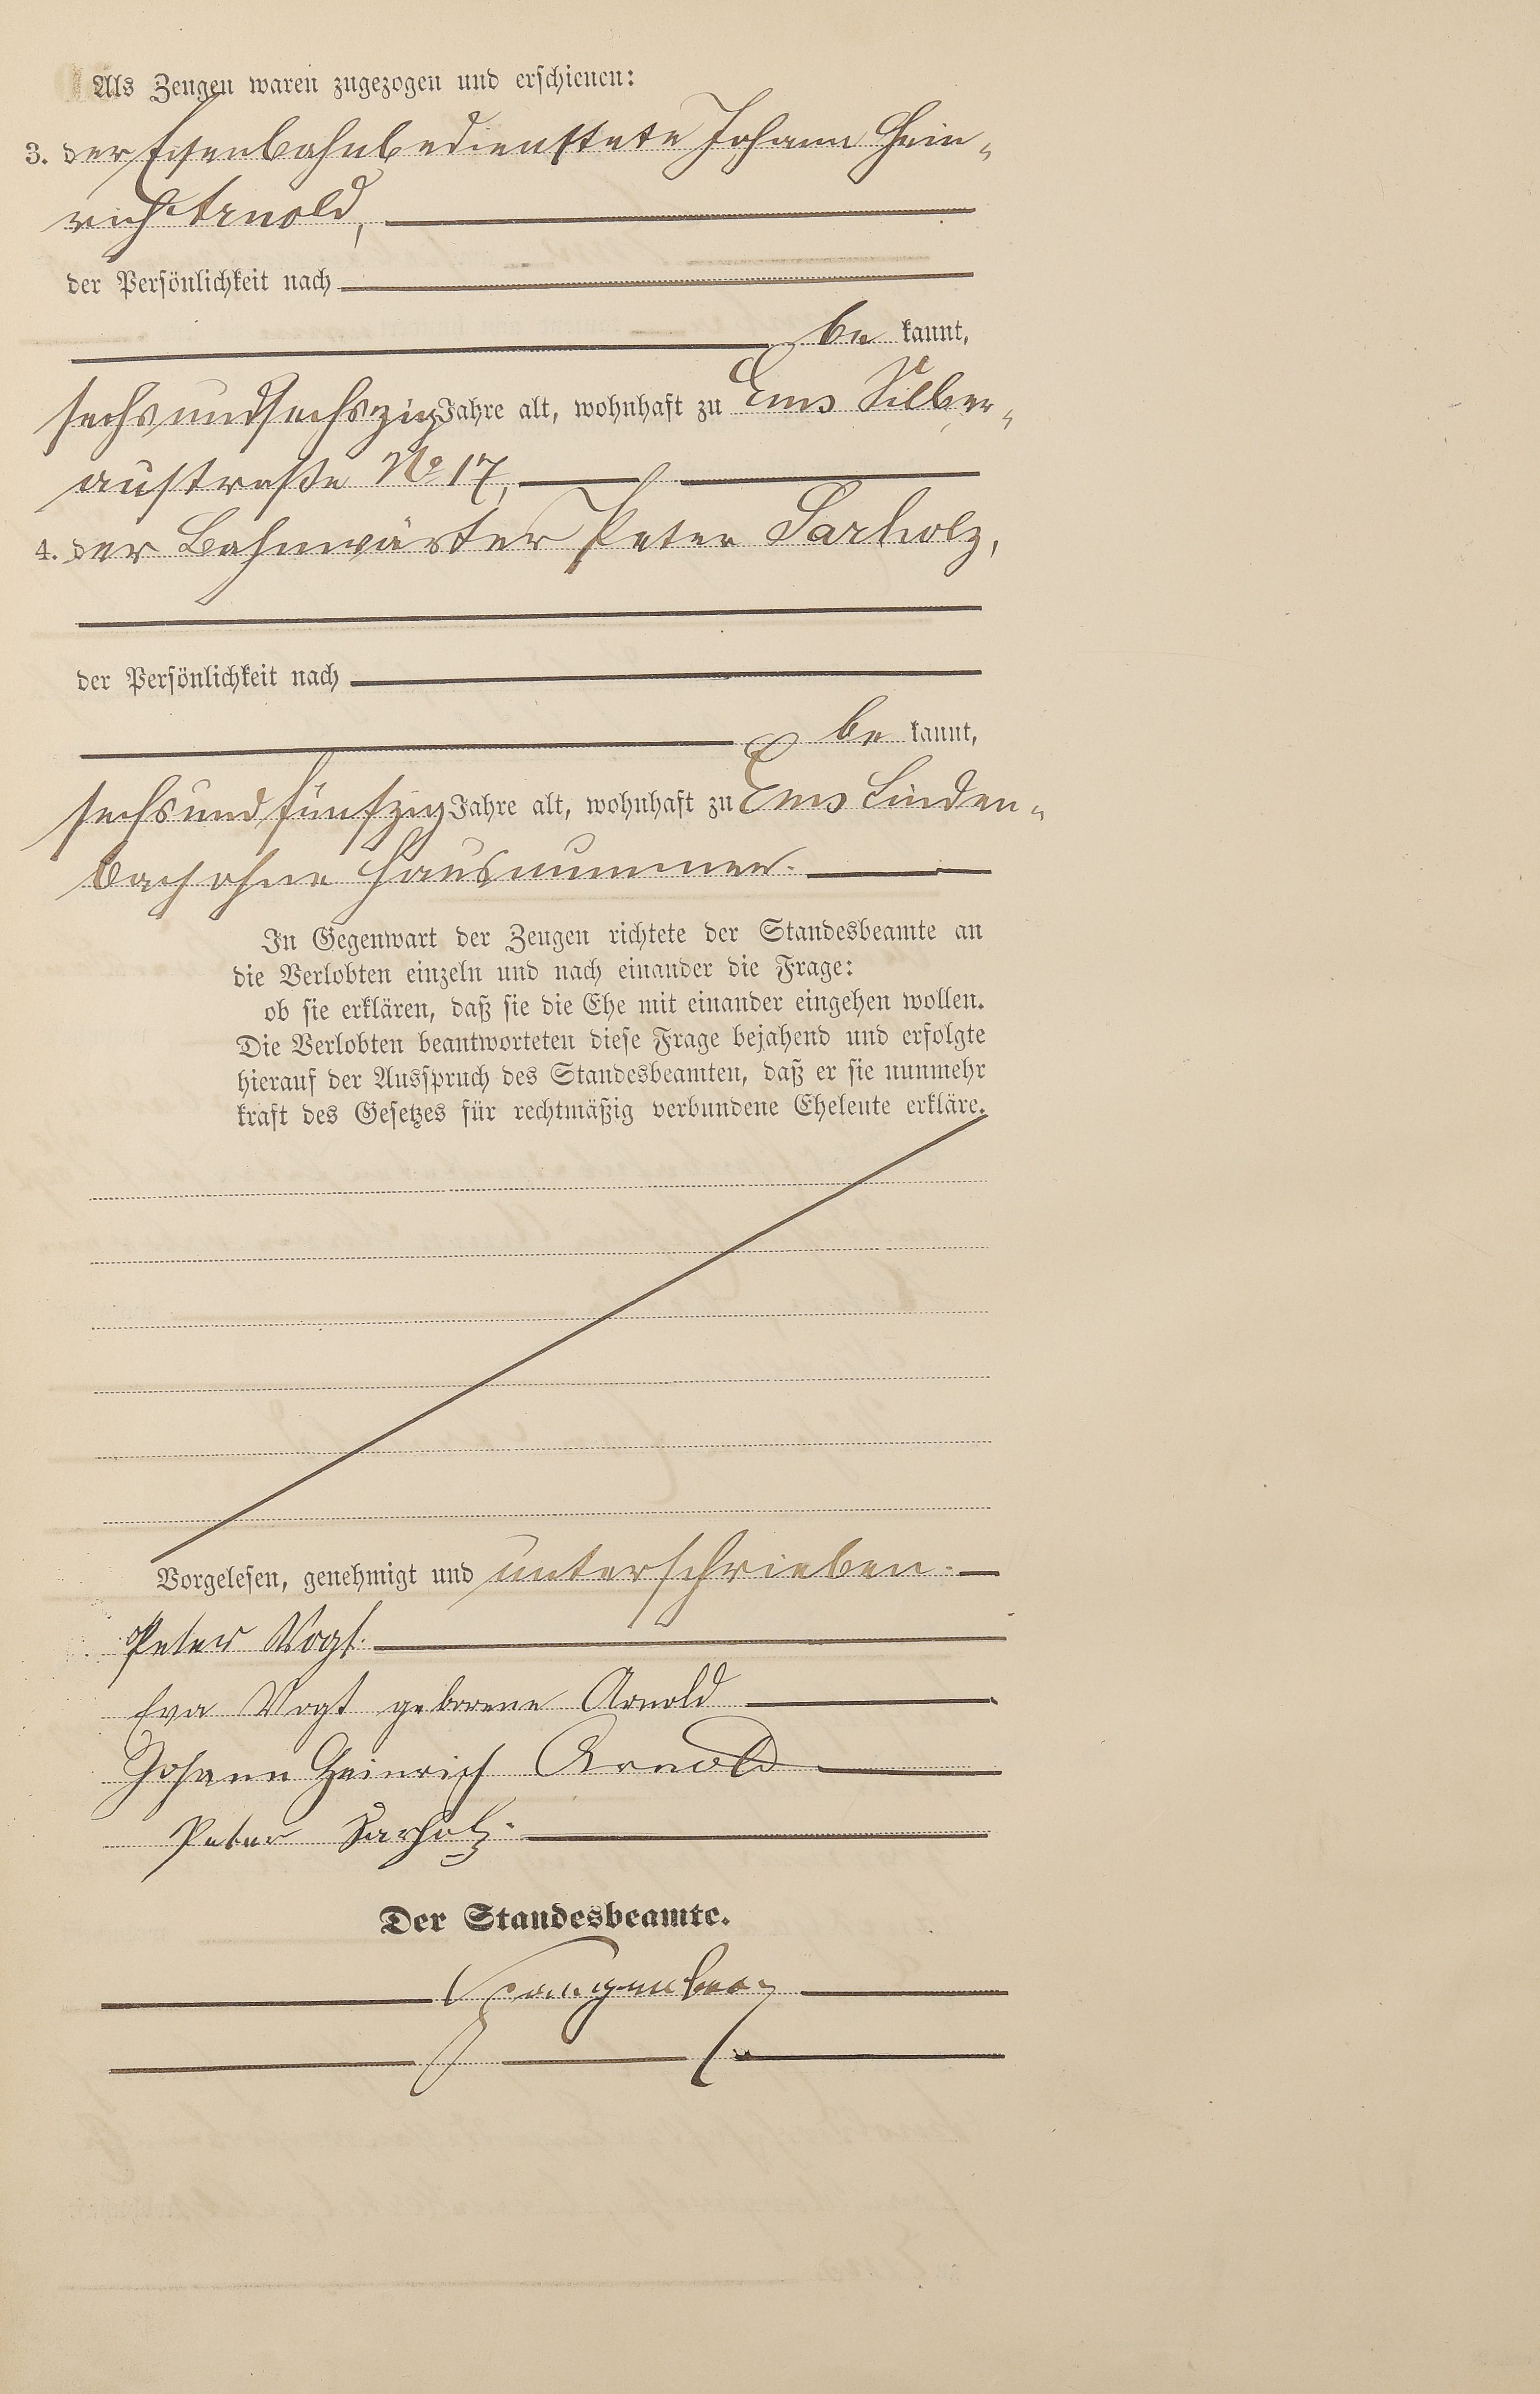 Als Zeugen waren zugezogen und erschienen:
3. der Eisenbahnbedienstete Johann Hein-
rich Arnold,
der Persönlichkeit nach
be kannt,
sechsundsechszig Jahre alt, wohnhaft zu Ems Silber-
austraße No 17,
4. der Bahnwärter Peter Sarholz,
der Persönlichkeit nach
be kannt,
sechsundfünfzig Jahre alt, wohnhaft zu Ems Linden-
bach ohne Hausnummer.
In Gegenwart der Zeugen richtete der Standesbeamte an
die Verlobten einzeln und nach einander die Frage:
ob sie erklären, daß sie die Ehe mit einander eingehen wollen.
Die Verlobten beantworteten diese Frage bejahend und erfolgte
hierauf der Ausspruch des Standesbeamten, daß er sie nunmehr
kraft des Gesetzes für rechtmäßig verbundene Eheleute erkläre.
Vorgelesen, genehmigt und unterschrieben.
Peter Vogt.
Eva Vogt geborene Arnold
Johann Heinrich Arnold
Peter Sarholz.
Der Standesbeamte.
Spangenberg